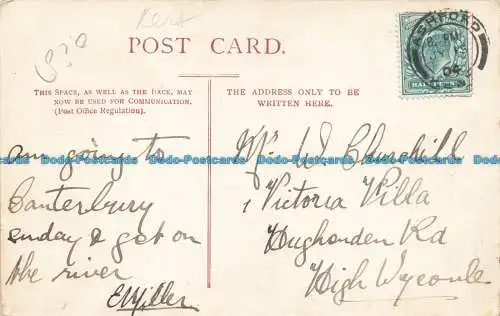 Kent
POST CARD.
THIS SPACE, AS WELL AS THE BACK, MAY
NOW BE USED FOR COMMUNICATION.
(Post Office Regulation).
THE ADDRESS ONLY TO BE
WRITTEN HERE.
ASHFORD
04
am going to
Canterbury
sunday & get on
the river
E Miller
Mr W. Churchill
1 Victoria Villa
Hughenden Rd
High Wycombe
Dodo-Postcards Dodo-Postcards Dodo-Postcards Dodo-Postcards